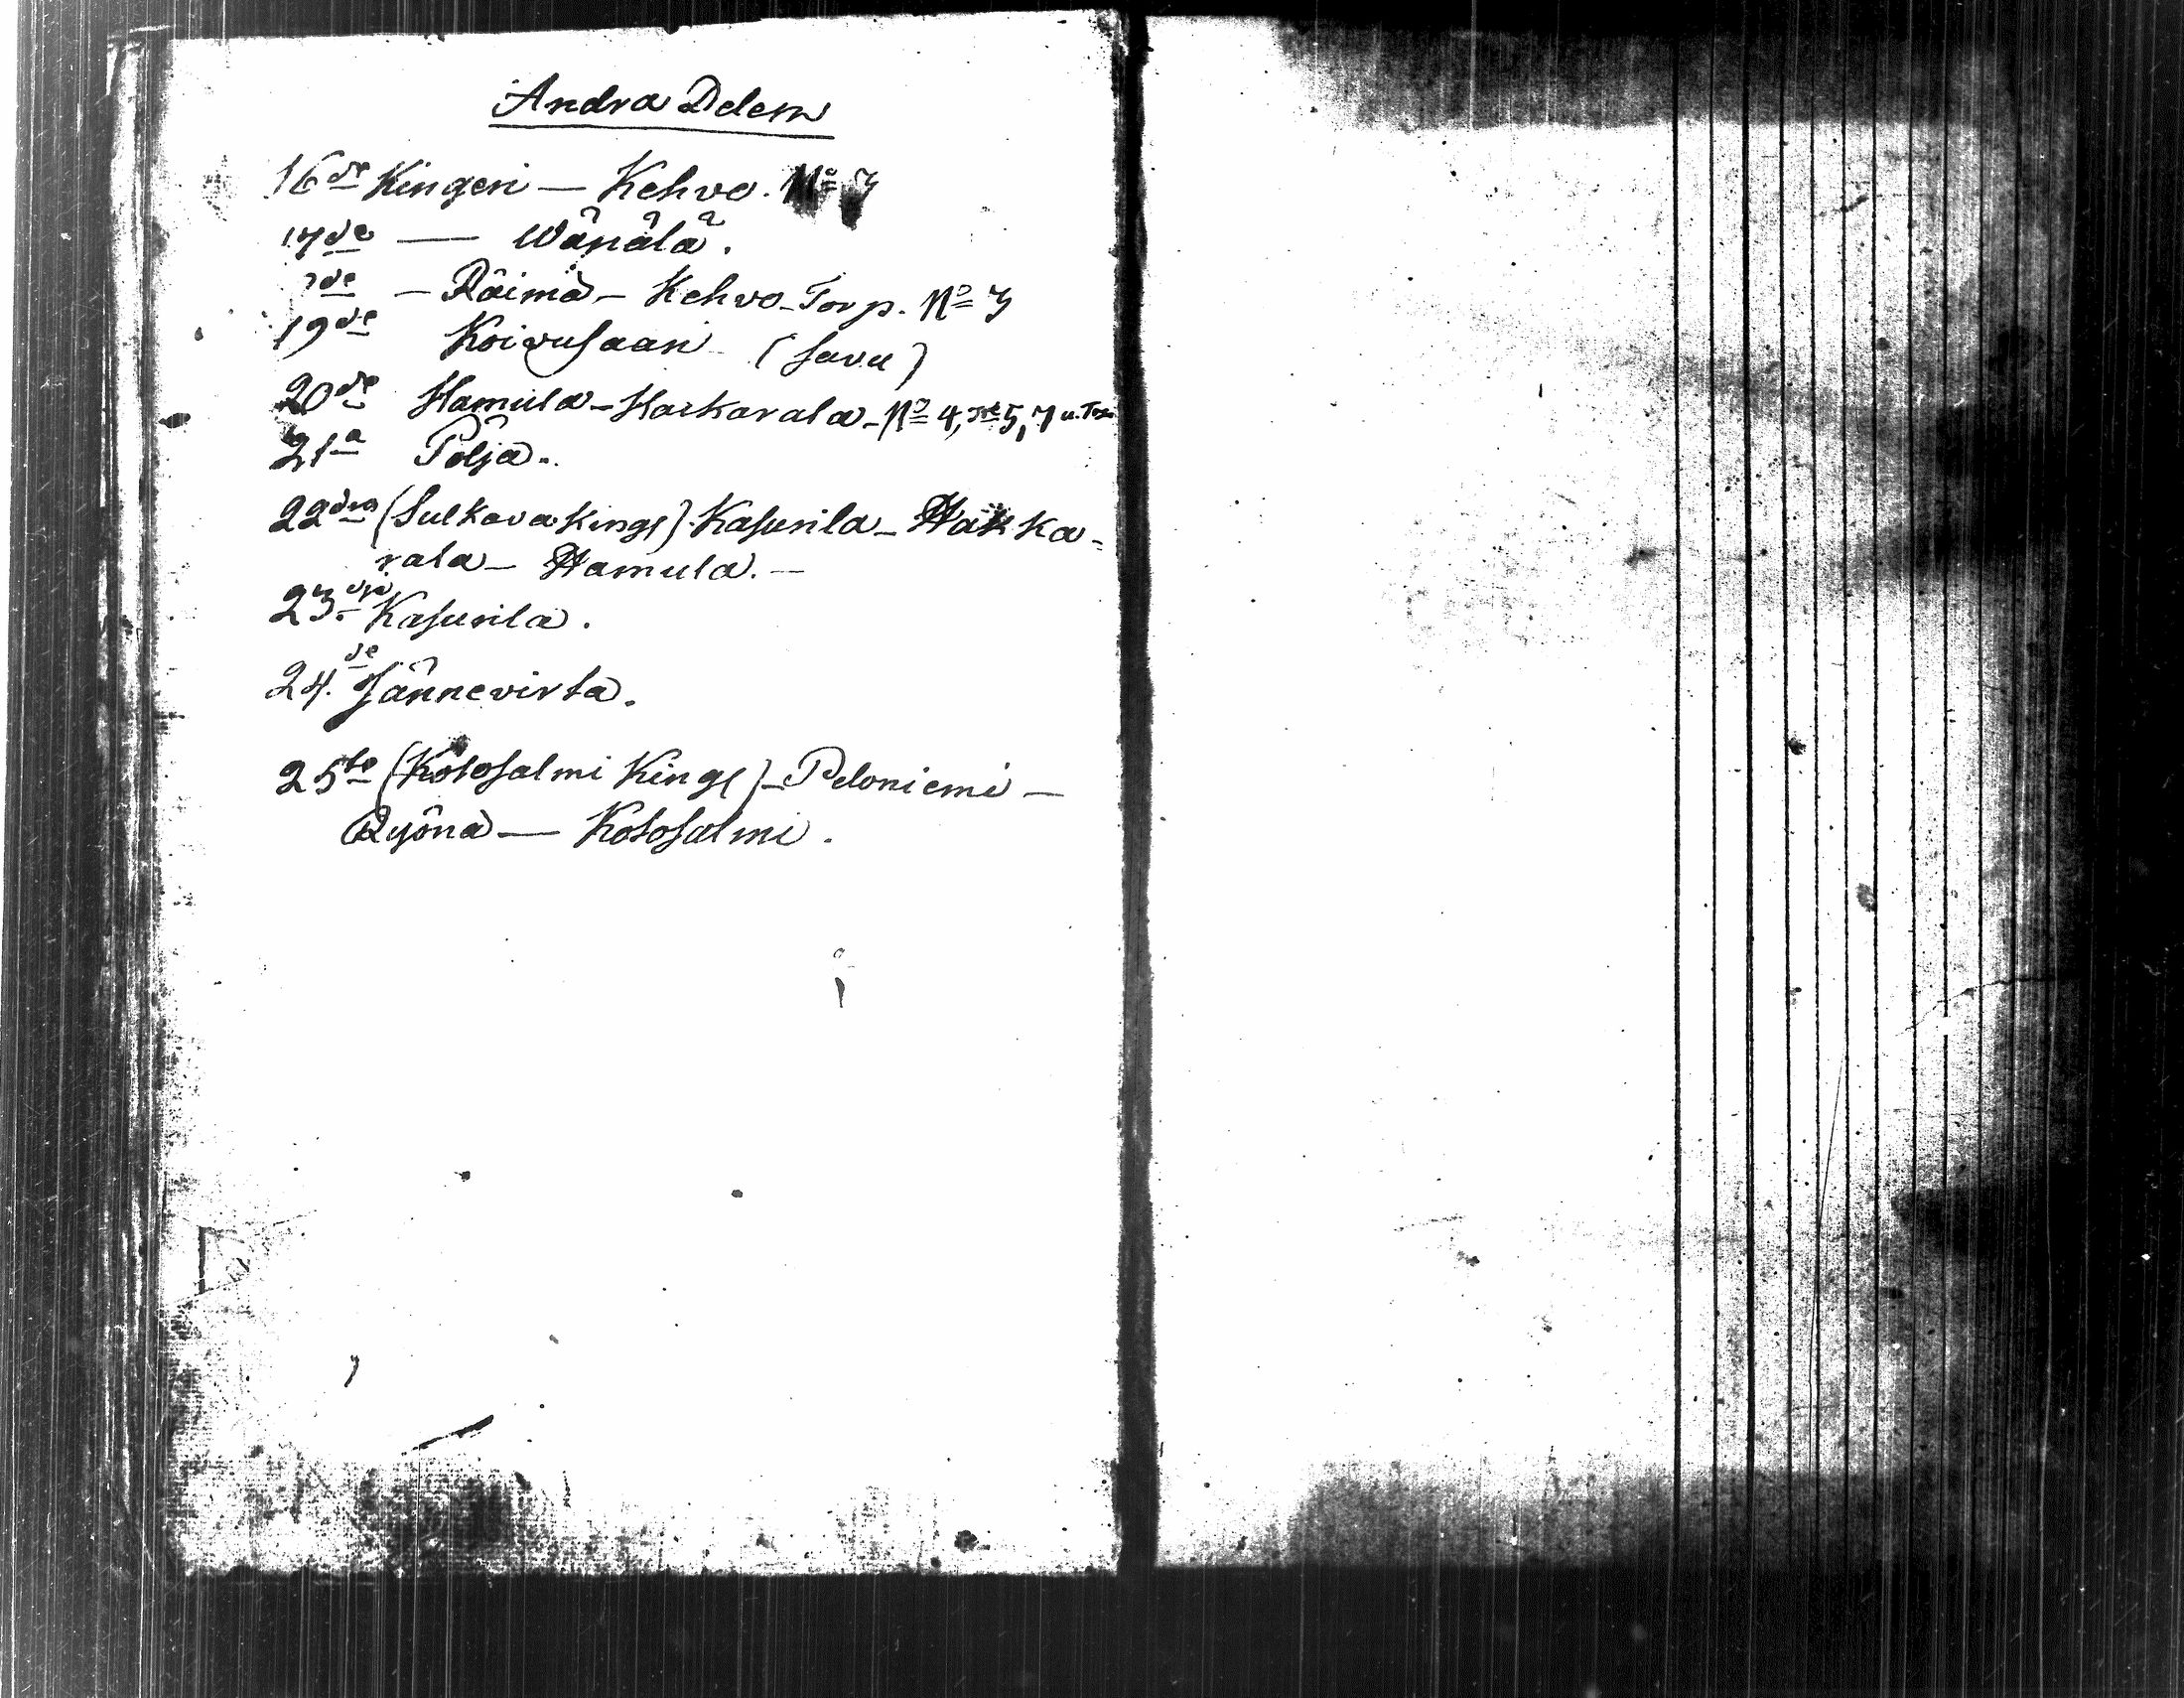 Andra Delen
16de Kingeri — Kehvo. No 7
17de — Wänälä.
de — Räimä — Kehvo-Torp. No 7
19de Koivusaari (Savu)
20de Hamula — Harkarala — No 4, 5, 7
21a Pöljä.
22dra (Sulkava Kingl) Kasurila — Hakka-
rala — Hamula. —
23dje Kasurila.
24.de Jännevirta.
25te (Kotosalmi Kingl) — Peloniemi —
Ryönä — Kotosalmi.